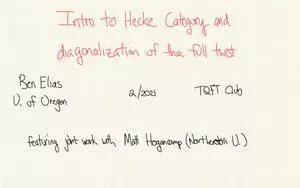 Intro to Hecke Category and
diagonalization of the full twist
Ben Elias
U. of Oregon
2/2021
TQFT Club
featuring joint work with Matt Hogancamp (Northeastern U.)